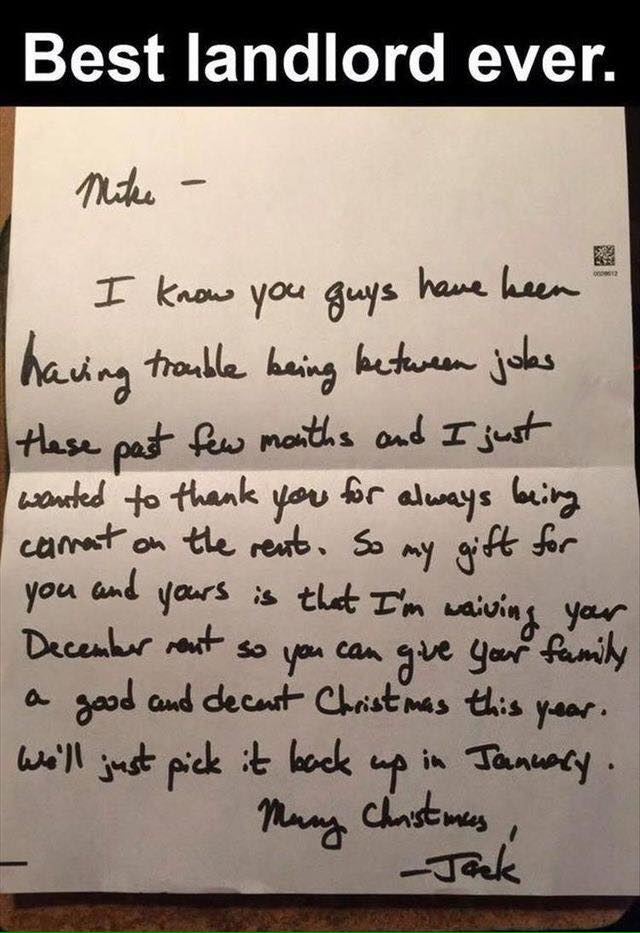 Best landlord ever.
Mike -
I know you guys have been
having trouble being between jobs
these past few months and I just
wanted to thank you for always being
current on the rent. So my gift for
you and yours is that I'm waiving your
December rent so you can give your family
a good and decent Christmas this year.
We'll just pick it back up in January.
Merry Christmas,
-Jack